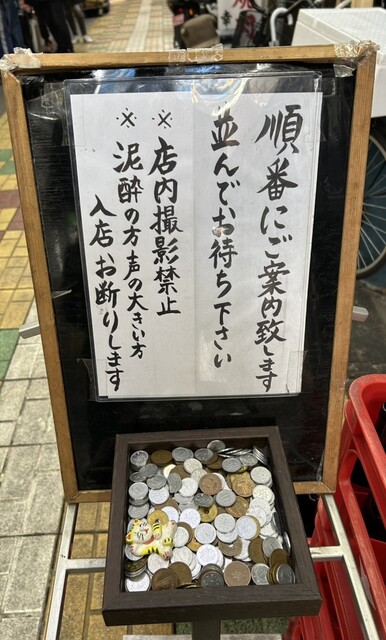 順番にご案内致します
並んでお待ち下さい
※店内撮影禁止
※泥酔の方声の大きい方
入店お断りします